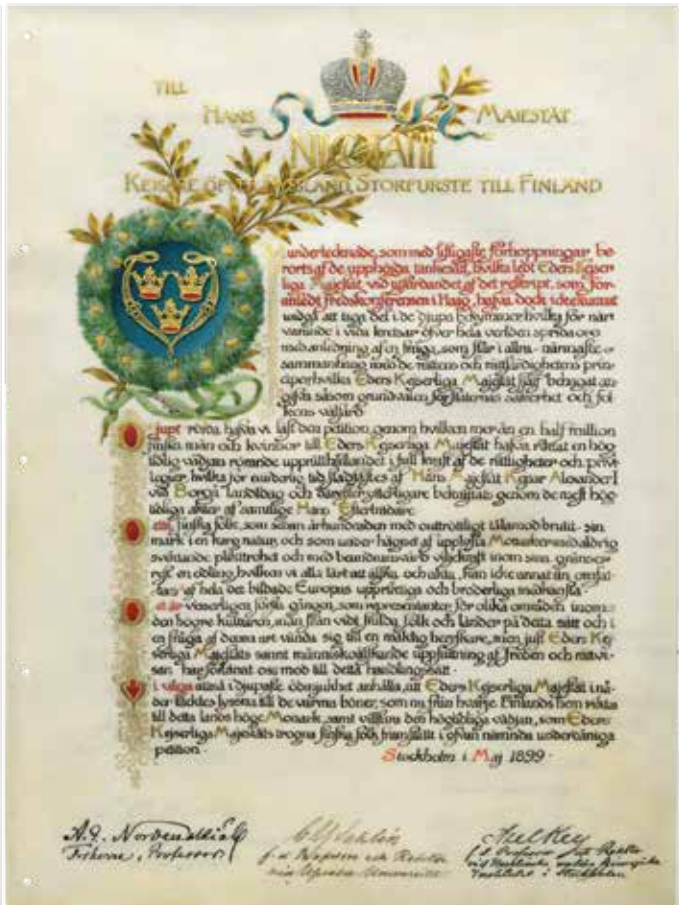 TILL
HANS MAJESTÄT
NIKOLAI II
KEJSARE ÖFVER RYSSLAND, STORFURSTE TILL FINLAND
undertecknade, som med lifligaste förhoppningar be-
rörts af de upphöjda tankesätt, hvilka ledt Eders Kejser-
liga Majestät vid utfärdandet af det reskript, som för-
anledt fredskonferensen i Haag, hafva dock icke kunnat
undgå att taga del i de djupa bekymmer hvilka för när-
varande i vida kretsar öfver hela verlden sprida oro
med anledning af en fråga, som står i allra närmaste
sammanhang med de rättens och rättfärdighetens prin-
ciper hvilka Eders Kejserliga Majestät sjelf behagat an-
gifva såsom grundvalen för staternas säkerhet och fol-
kens välfärd
jupt rörda hafva vi läst den petition, genom hvilken mer än en half million
finska män och kvinnor till Eders Kejserliga Majestät hafva riktat en hög-
tidlig vädjan rörande upprätthållandet i full kraft af de rättigheter och privi-
legier, hvilka för evärderlig tid stadfästes af Hans Majestät Kejsar Alexander I
vid Borgå landtdag och derefter ytterligare bekräftats genom de mest hög-
tidliga akter af samtlige Hans Efterträdare
finska folk, som sedan århundraden med outtröttligt tålamod brutit sin
mark i en karg natur, och som under hägnet af upplysta Monarker med aldrig
sviktande plikttrohet och med beundransvärd viljekraft inom sina gränser
rest en odling, hvilken vi alla lärt att älska och akta, kan icke annat än omfat-
tas af hela det bildade Europas uppriktiga och broderliga medkänsla
et är visserligen första gången, som representanter för olika områden inom
den högre kulturen, män från vidt skilda folk och länder på detta sätt och i
en fråga af denna art vända sig till en mäktig herskare, men just Eders Kej-
serliga Majestäts sannt människoälskande uppfattning af freden och rättvi-
san har förlänat oss mod till detta handlingssätt
i våga altså i djupaste ödmjukhet anhålla, att Eders Kejserliga Majestät i nå-
der täcktes lyssna till de varma böner, som nu från hvarje Finlands hem riktas
till detta lands höge Monark, samt villfara den högtidliga vädjan, som Eders
Kejserliga Majestäts trogna finska folk framställt i ofvan nämnda underdåniga
petition
Stockholm i Maj 1899
A. E. Nordenskiöld
Friherre, Professor
f. d. Professor och Rektor
vid Upsala Universitet
Axel Key
f. d. Professor och Rektor
vid Karolinska medico kirurgiska
Institutet i Stockholm